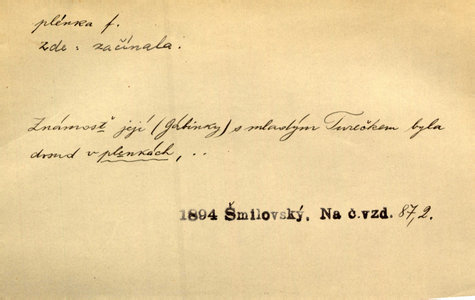 plénka f.
zde: začínala.
Známosť její (Gábinky) s mladým Turečkem byla
dosud v plenkách, ..
1894 Šmilovský, Na č.vzd. 87,2.